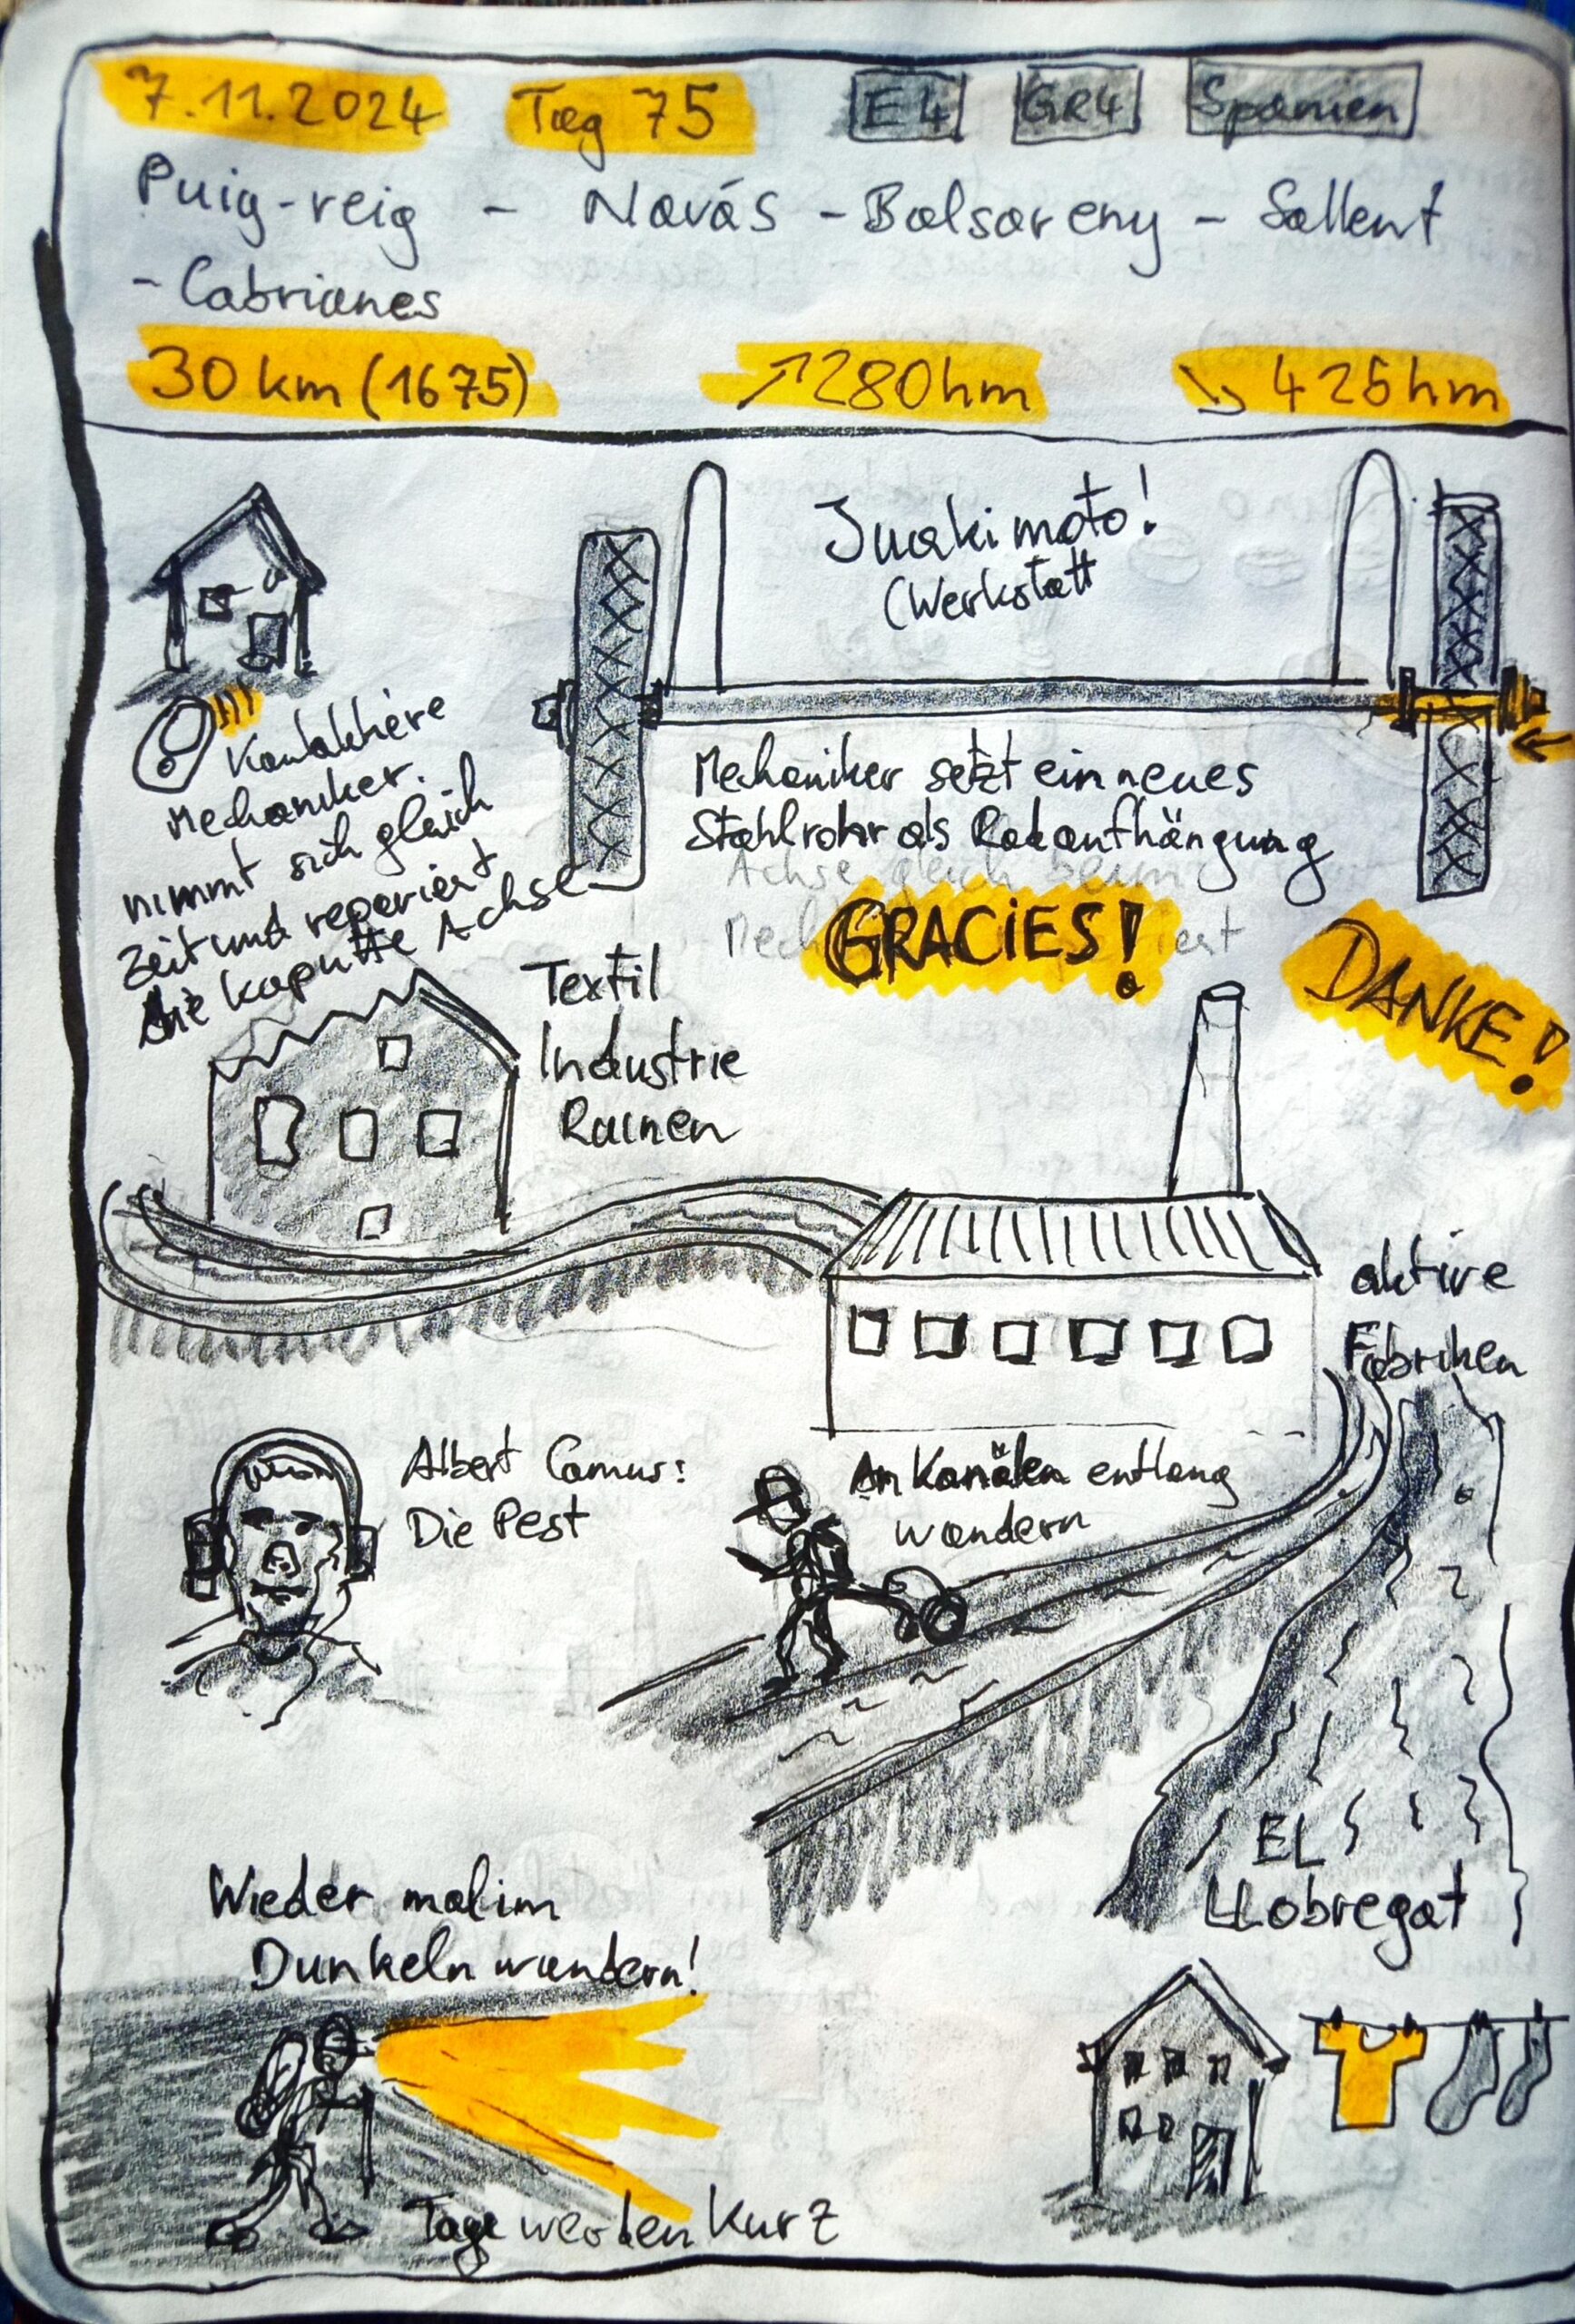 7.11.2024 Tag 75 E4 GR4 Spanien
Puig-reig - Navás - Balsareny - Sallent
- Cabrianes
30 km (1675) ↗ 280hm ↘ 425hm
Juakimoto!
(Werkstatt
Kontaktiere
Mechaniker.
nimmt sich gleich
Zeit und repariert
die kaputte Achse
Mechaniker setzt ein neues
Stahlrohr als Radaufhängung
Achse gleich beim
GRACIES!
DANKE!
Textil
Industrie
Ruinen
aktive
Fabriken
Albert Camus:
Die Pest
An Kanälen entlang
wandern
EL
LLobregat
Wieder mal im
Dunkeln wandern!
Tage werden kurz